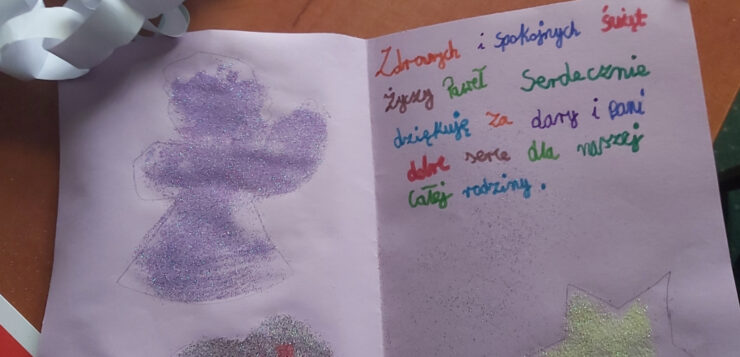 Zdrowych i spokojnych świąt
życzy Paweł Serdecznie
dziękuję za dary i pani
dobre serce dla naszej
całej rodziny.